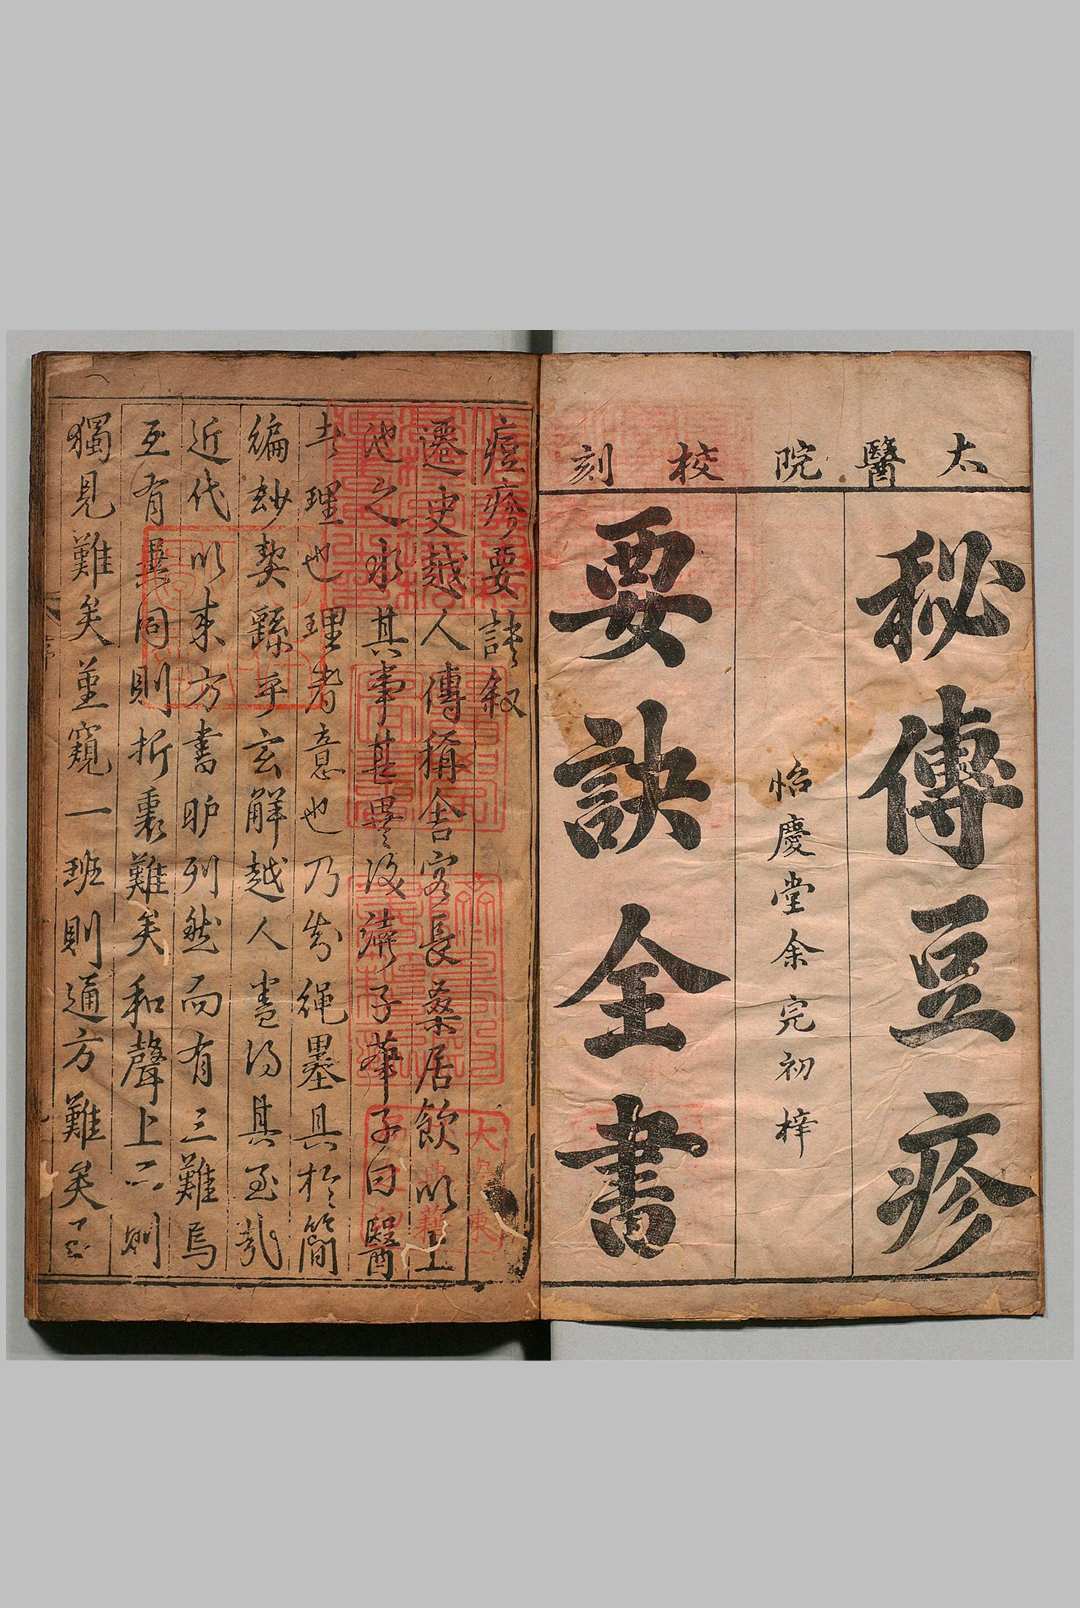 太醫院校刻
秘傳豆疹
怡慶堂余完初梓
要訣全書
痘疹要訣叙
遷史越人傳稱舍客長桑居飲以上
池之水其事甚異後濟子華子曰醫
者理也理者意也乃知繩墨具於簡
編妙契繇乎玄解越人書得其至哉
近代以来方書臚列然而有三難焉
互有異同則折衷難矣和聲上下則
獨見難矣堇窺一班則通方難矣